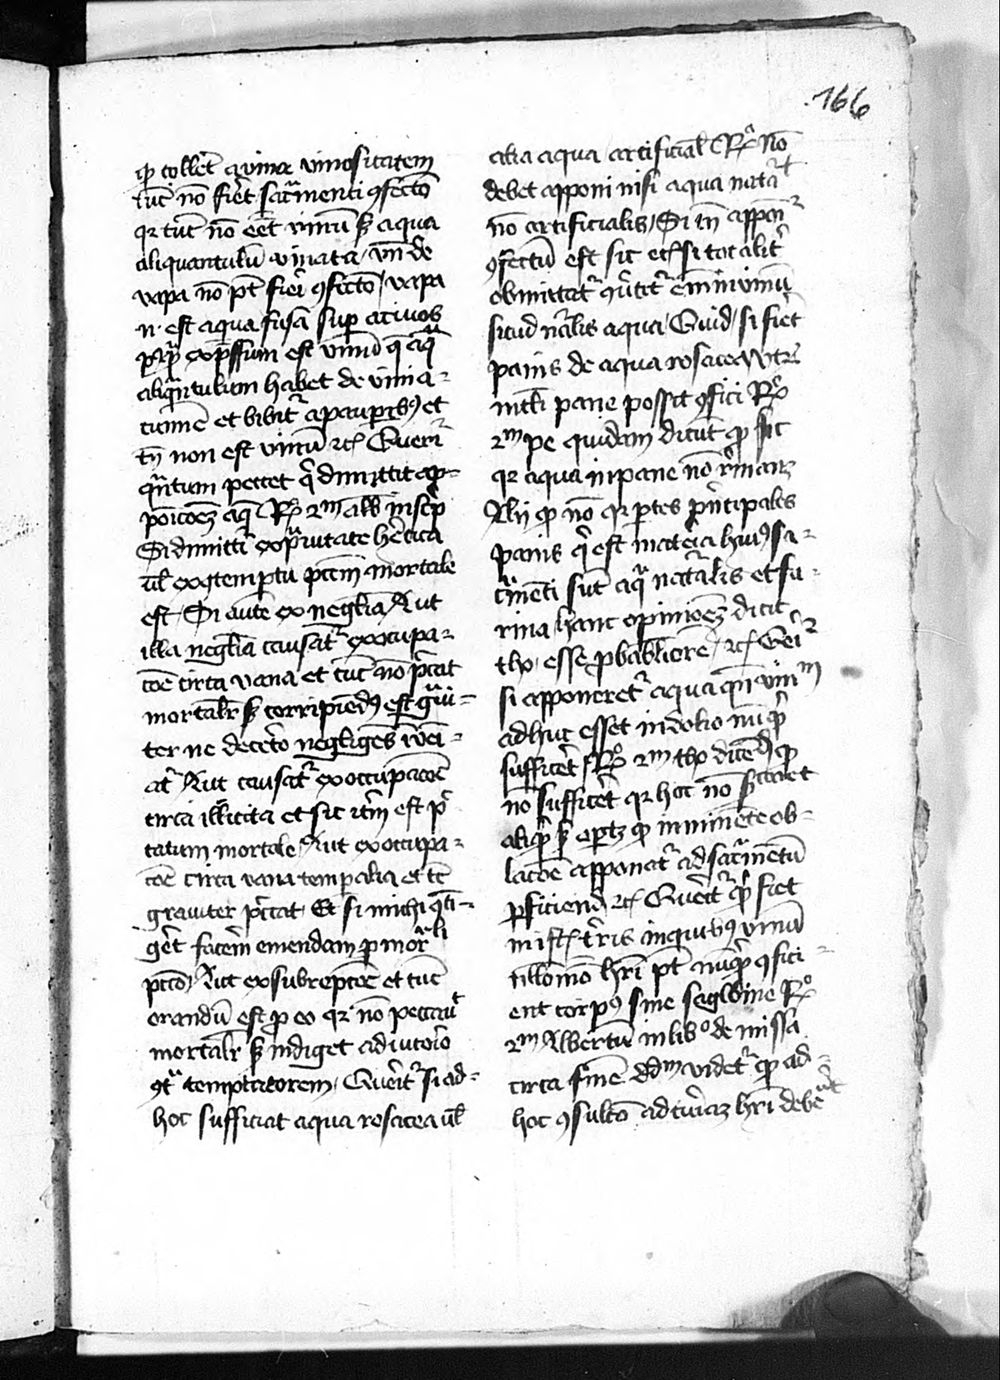 166
ꝙ tolleret a vino vinositatem
tuc̄ nō fieret sacr̄menti ꝯfectō
qr tūc nō eēt vinū sꝫ aqua
aliquantulū vinata, vn̄ de
vapa nō pt̄ fieri ꝯfectō, vapa
n̄ est aqua fusa sup acinos
exp̄ssum est vinū
aliqn̄tulum habet de vini a-
cumīe et bibit̄ a paupibꝯ et
tn̄ non est vinū ⁊c̄ Querit̄
qn̄tum peccet q̄ dimittit ap-
poīcōeꝫ aq̄ Rx̄ 2m alb̄ in sc̄p̄
Si dimittit̄ ex p̄uitate he̅tica
ul̄ ex ꝯtemptu pcc̄m mortale
est, Si aute ex neglīa Aut
illa neglīa causat̄ ex occupa-
cōe circa vana et tūc nō p̄ccat
mortalr̄ sꝫ corripiendꝯ est g̃ui-
ter ne decet̄o negligēs
at̄ Aut causat̄ ex occupacōe
circa illicita et sic itm̄ est p̄c-
catum mortale, Aut ex occupa-
cōe circa vana tempalia et tc̄
grauiter p̄ccat, Et si michi
g̃et facerem emendam p mor̄li
pccō, Aut ex subrepcōe et tūc
orandū est p eo qr nō peccauit
mortalr̄ sꝫ indiget adiutoīo
ꝯt̃ temptatorem, Querit̄ si ad-
hoc sufficiat aqua rosacea ul̄
alia aqua artificial̄ Rx̄ Nō
debet apponi nisi aqua nat̄al̄
nō artificialis, Si tn̄ appon̄
ꝯfectū est sic etsi totalit̄
obmittat̄ vinū
sic̄ud n̄alis aqua, Quid, si fieret
panis de aqua rosacea Vt̄
in tali pane possit ꝯfici Rx̄
2m pe quidam dicūt ꝙ sic
qr aqua in pane nō r̄manꝫ
Alij ꝙ nō qr ptes p̄ncipales
panis q̄ est mat̄ia huiꝯ sa-
cr̄menti sūt aq̄ nat̄alis et fa-
rina hanc opinioēꝫ dicit
tho esse p̄babliorē, ⁊c̄ Queit̄
si apponeret̄ aqua qn̄ vinm
adhuc esset in dolio nūq̄
sufficeret Rx̄ 2m tho dicēd̄ ꝙ
nō sufficeret qr hoc nō
aliq̄ sꝫ optꝫ ꝙ imminēte ob-
lacōe apponat̄ ad sacr̄mentū
pficiend ⁊c̄ Querit̄ q̄ fiet
in istis tr̄ris in quibꝯ vinū
nllo mō hr̄i pt̄ nūq̄ ꝯfici-
ent corpꝯ sine sagwine Rx̄
2m Albertū in lib̊ de missa
circa finē Ad̄m videt̄ ꝙ ad
hoc ꝯsultō ad hr̄i debēt